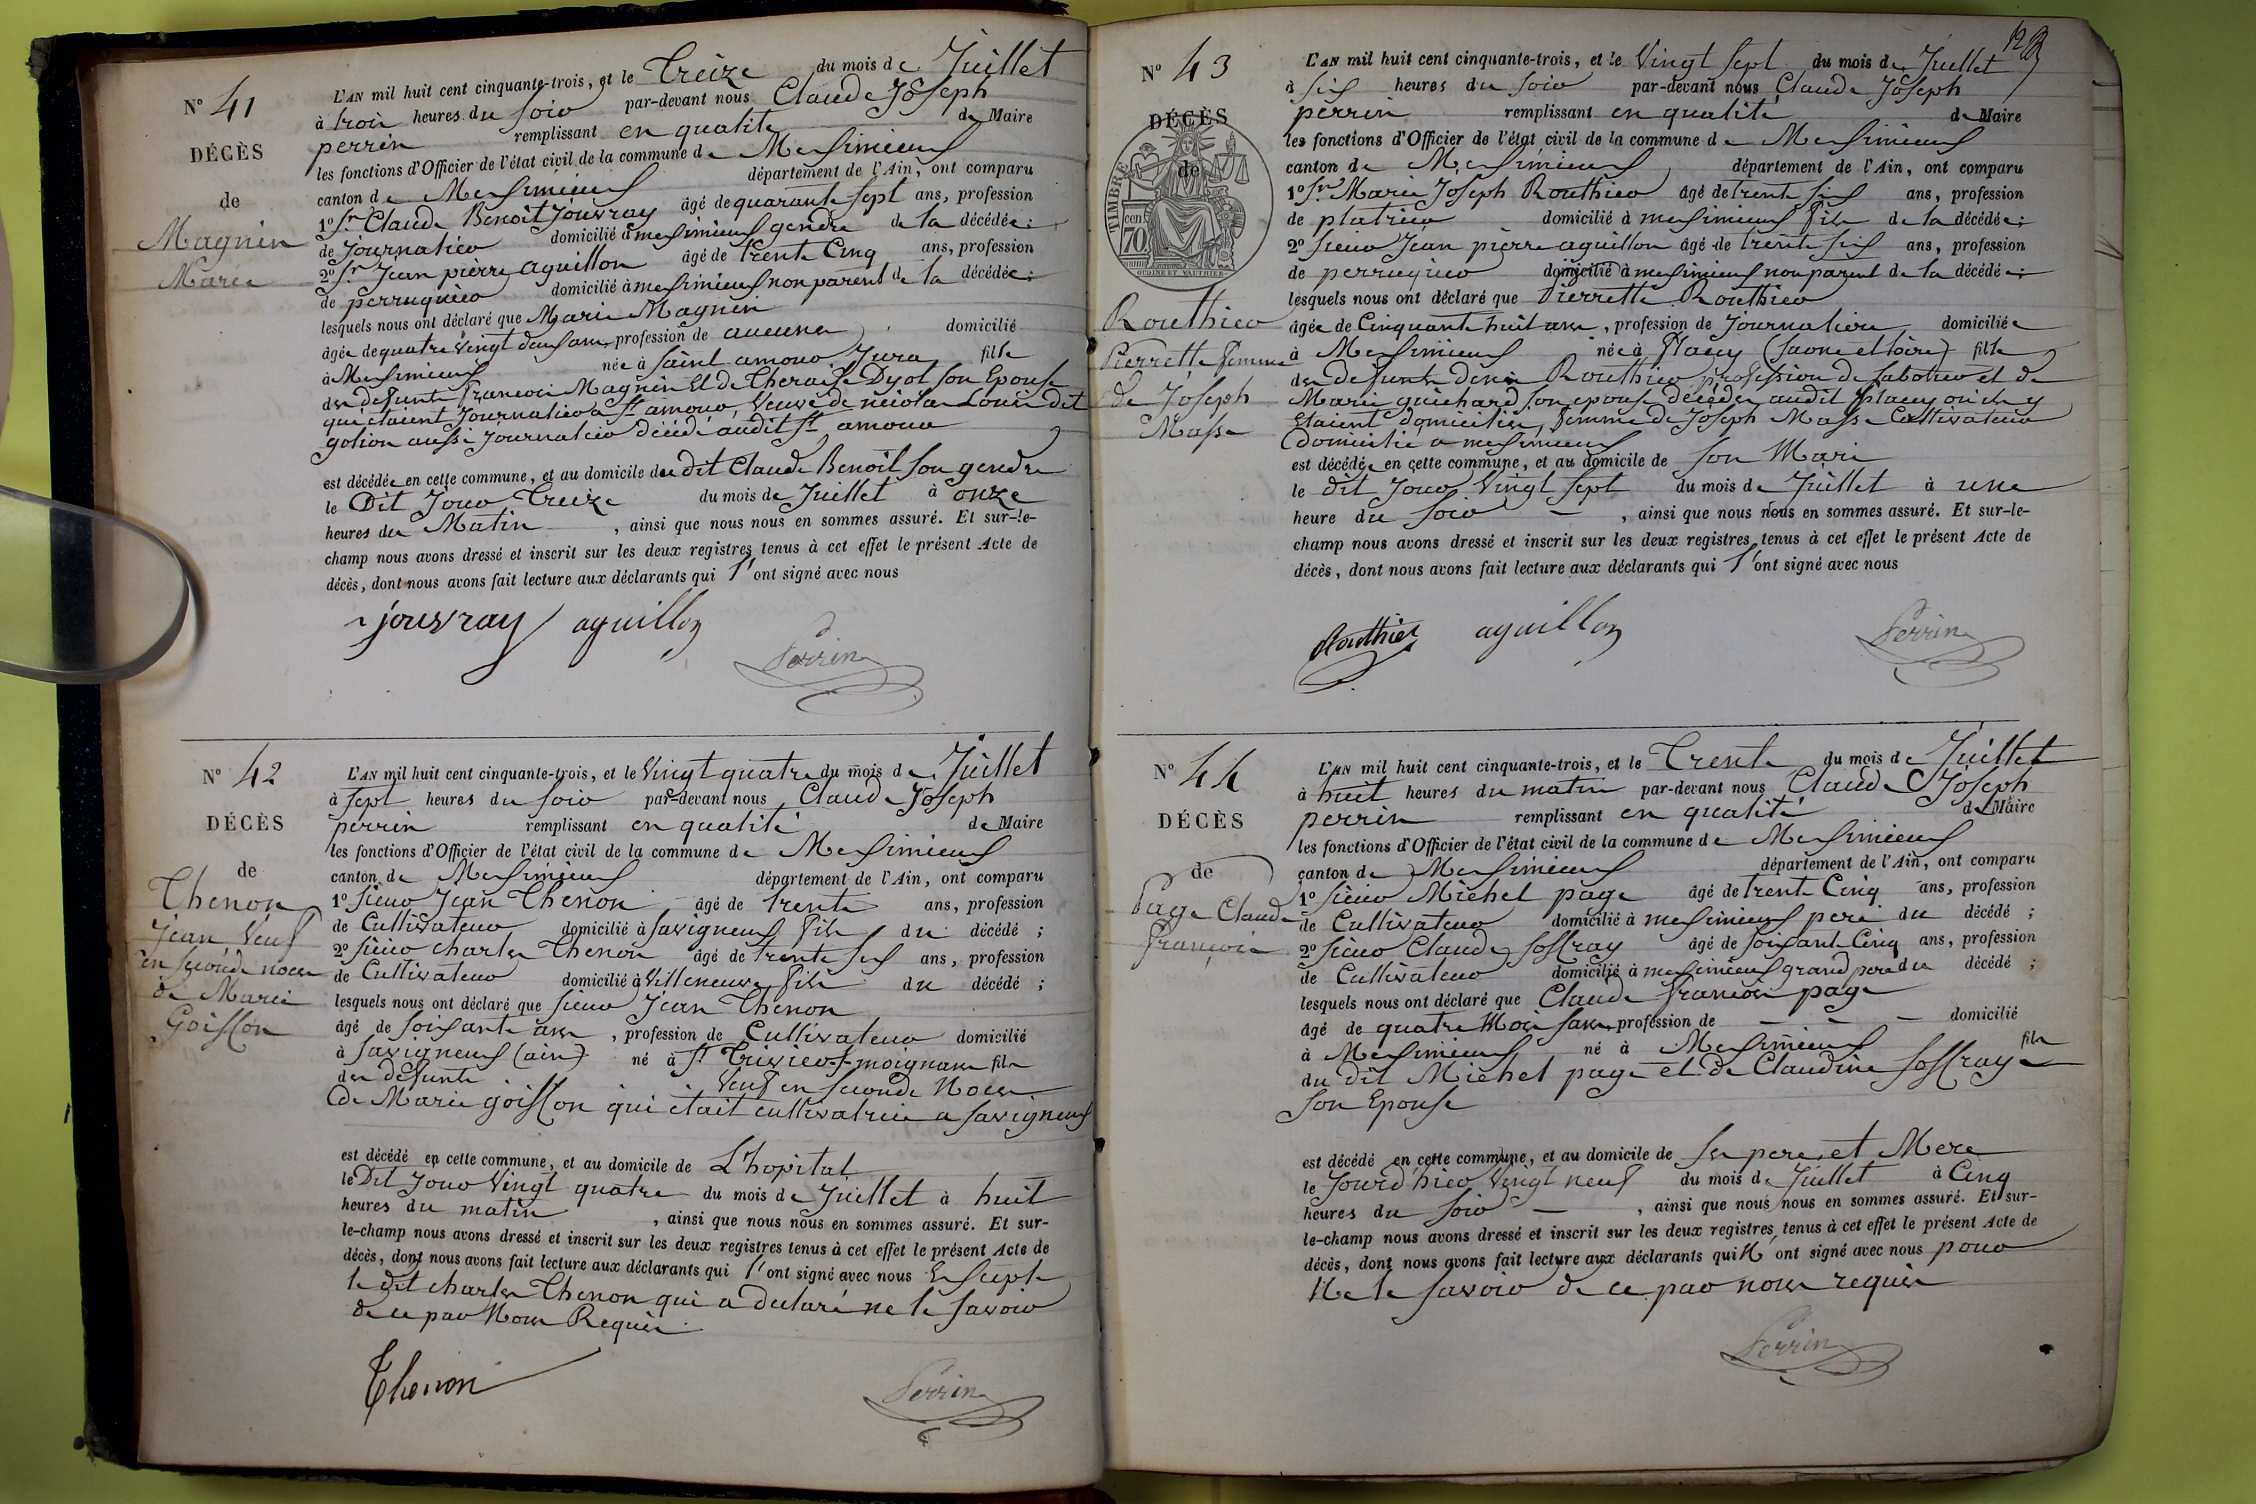 N° 41
DÉCÈS
de
Magnin
Marie
L'AN mil huit cent cinquante-trois, et le Treize du mois de Juillet
à trois heures du soir par-devant nous Claude Joseph
perrin remplissant en qualité de Maire
les fonctions d'Officier de l'état civil de la commune de Messimieux
canton de Messimieux département de l'Ain, ont comparu
1° Sr Claude Benoit Jouvray âgé de quarante sept ans, profession
de Journalier domicilié à messimieux gendre de la décédée ;
2° Sr Jean pierre aguillon âgé de trente Cinq ans, profession
de perruquier domicilié à messimieux non parent de la décédée ;
lesquels nous ont déclaré que Marie Magnin
âgée de quatre vingt deux ans, profession de aucune domicilié
à Messimieux née à saint amour Jura fille
des defunts francois Magnin Et de Theraise Dyot son Epouse
qui étaient Journaliers a St amour, Veuve de nicolas Louis dit
golion aussi journalier décédé audit St amour
est décédée en cette commune, et au domicile du dit Claude Benoit son gendre
le Dit Jour Treize du mois de Juillet à onze
heures du Matin , ainsi que nous nous en sommes assuré. Et sur-le-
champ nous avons dressé et inscrit sur les deux registres tenus à cet effet le présent Acte de
décès, dont nous avons fait lecture aux déclarants qui l'ont signé avec nous
jouvray aguillon
Perrin
N° 42
DÉCÈS
de
Thenon
Jean, Veuf
en seconde noces
de Marie
Goisson
L'AN mil huit cent cinquante-trois, et le Vingt quatre du mois de Juillet
à sept heures du soir par-devant nous Claude Joseph
perrin remplissant en qualité de Maire
les fonctions d'Officier de l'état civil de la commune de Messimieux
canton de Messimieux département de l'Ain, ont comparu
1° sieur Jean Thenon âgé de trente ans, profession
de Cultivateur domicilié à savigneux fils du décédé ;
2° sieur charles Thenon âgé de trente six ans, profession
de Cultivateur domicilié à Villeneuve fils du décédé ;
lesquels nous ont déclaré que sieur Jean Thenon
âgé de soixante ans , profession de Cultivateur domicilié
à savigneux (ain) né à St Trivier S. moignans fils
des defunts Veuf en seconde Noces
de Marie goisson qui etait cultivatrice a savigneux
est décédé en cette commune, et au domicile de L'hopital
le Dit Jour Vingt quatre du mois de Juillet à huit
heures du matin , ainsi que nous nous en sommes assuré. Et sur-
le-champ nous avons dressé et inscrit sur les deux registres tenus à cet effet le présent Acte de
décès, dont nous avons fait lecture aux déclarants qui l'ont signé avec nous Excepte
le dit charles Thenon qui a declaré ne le savoir
de ce par Nous Requis
Thenon
Perrin
N° 43
DÉCÈS
de
TIMBRE
cent
70
OUDINÉ ET VAUTHIER
Routhier
Pierrette femme
de Joseph
Masse
L'AN mil huit cent cinquante-trois, et le Vingt sept du mois de Juillet
à six heures du soir par-devant nous Claude Joseph
perrin remplissant en qualité de Maire
les fonctions d'Officier de l'état civil de la commune de Messimieux
canton de Messimieux département de l'Ain, ont comparu
1° Sr Marie Joseph Routhier âgé de trente six ans, profession
de platrier domicilié à messimieux fils de la décédée ;
2° sieur Jean pierre aguillon âgé de trente six ans, profession
de perruquier domicilié à messimieux non parent de la décédée ;
lesquels nous ont déclaré que Pierrette Routhier
âgée de Cinquante huit ans , profession de Journaliere domiciliée
à Messimieux née à flacey (saone et loire) fille
des defunts denis Routhier profession de sabotier et de
Marie guichard son epouse décédés audit flacey où ils y
Etaient domiciliés, femme de Joseph Masse Cultivateur
domicilié a messimieux
est décédée en cette commune, et au domicile de son Mari
le dit jour Vingt sept du mois de Juillet à une
heure du soir , ainsi que nous nous en sommes assuré. Et sur-le-
champ nous avons dressé et inscrit sur les deux registres tenus à cet effet le présent Acte de
décès, dont nous avons fait lecture aux déclarants qui l'ont signé avec nous
Routhier aguillon Perrin
N° 44
DÉCÈS
de
Page Claude
françois
L'AN mil huit cent cinquante-trois, et le Trente du mois de Juillet
à huit heures du matin par-devant nous Claude Joseph
perrin remplissant en qualité de Maire
les fonctions d'Officier de l'état civil de la commune de Messimieux
canton de Messimieux département de l'Ain, ont comparu
1° sieur Michel page âgé de trente Cinq ans, profession
de Cultivateur domicilié à messimieux pere du décédé ;
2° sieur Claude soffray âgé de soixante Cinq ans, profession
de Cultivateur domicilié à messimieux grand pere du décédé ;
lesquels nous ont déclaré que Claude francois page
âgé de quatre Mois sans profession de domicilié
à Messimieux né à Messimieux fils
du dit Michel page et de Claudine soffray
son Epouse
est décédé en cette commune, et au domicile de ses pere et Mere
le Jourd'hier Vingt neuf du mois de Juillet à Cinq
heures du soir , ainsi que nous nous en sommes assuré. Et sur-
le-champ nous avons dressé et inscrit sur les deux registres tenus à cet effet le présent Acte de
décès, dont nous avons fait lecture aux déclarants qui N'ont signé avec nous pour
Ne le savoir de ce par nous requis
Perrin